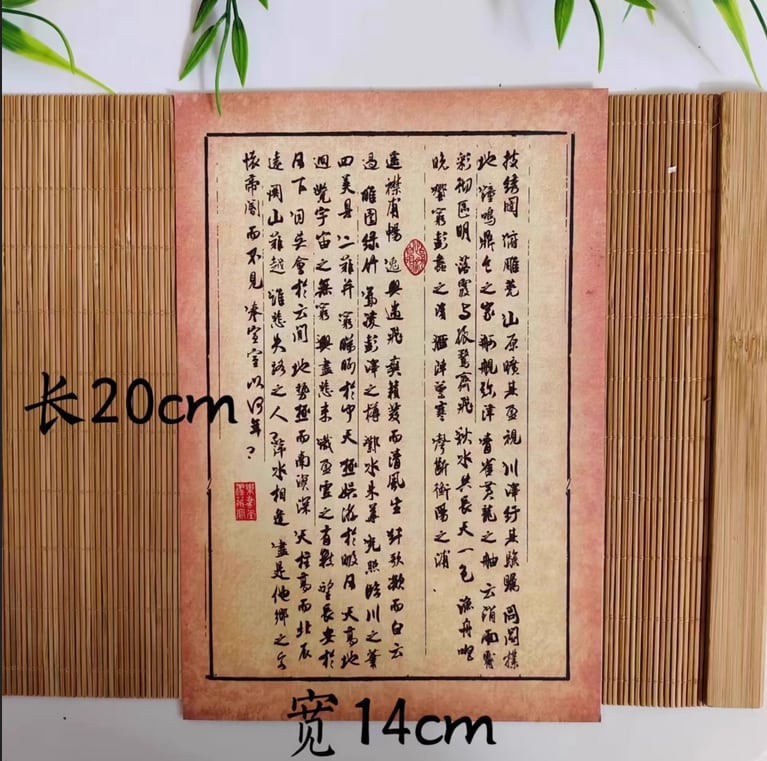 披绣闼 俯雕甍 山原旷其盈视 川泽纡其骇瞩 闾阎扑
地 钟鸣鼎食之家 舸舰弥津 青雀黄龙之舳 云消雨霁
彩彻区明 落霞与孤鹜齐飞 秋水共长天一色 渔舟唱
晚 响穷彭蠡之滨 雁阵惊寒 声断衡阳之浦.
遥襟甫畅 逸兴遄飞 爽籁发而清风生 纤歌凝而白云
遏 睢园绿竹 气凌彭泽之樽 邺水朱华 光照临川之笔
四美具 二难并 穷睇眄于中天 极娱游于暇日 天高地
迥 觉宇宙之无穷 兴尽悲来 识盈虚之有数 望长安于
日下 目吴会于云间 地势极而南溟深 天柱高而北辰
远 关山难越 谁悲失路之人 萍水相逢 尽是他乡之客
怀帝阍而不见 奉宣室以何年?
长20cm
宽14cm